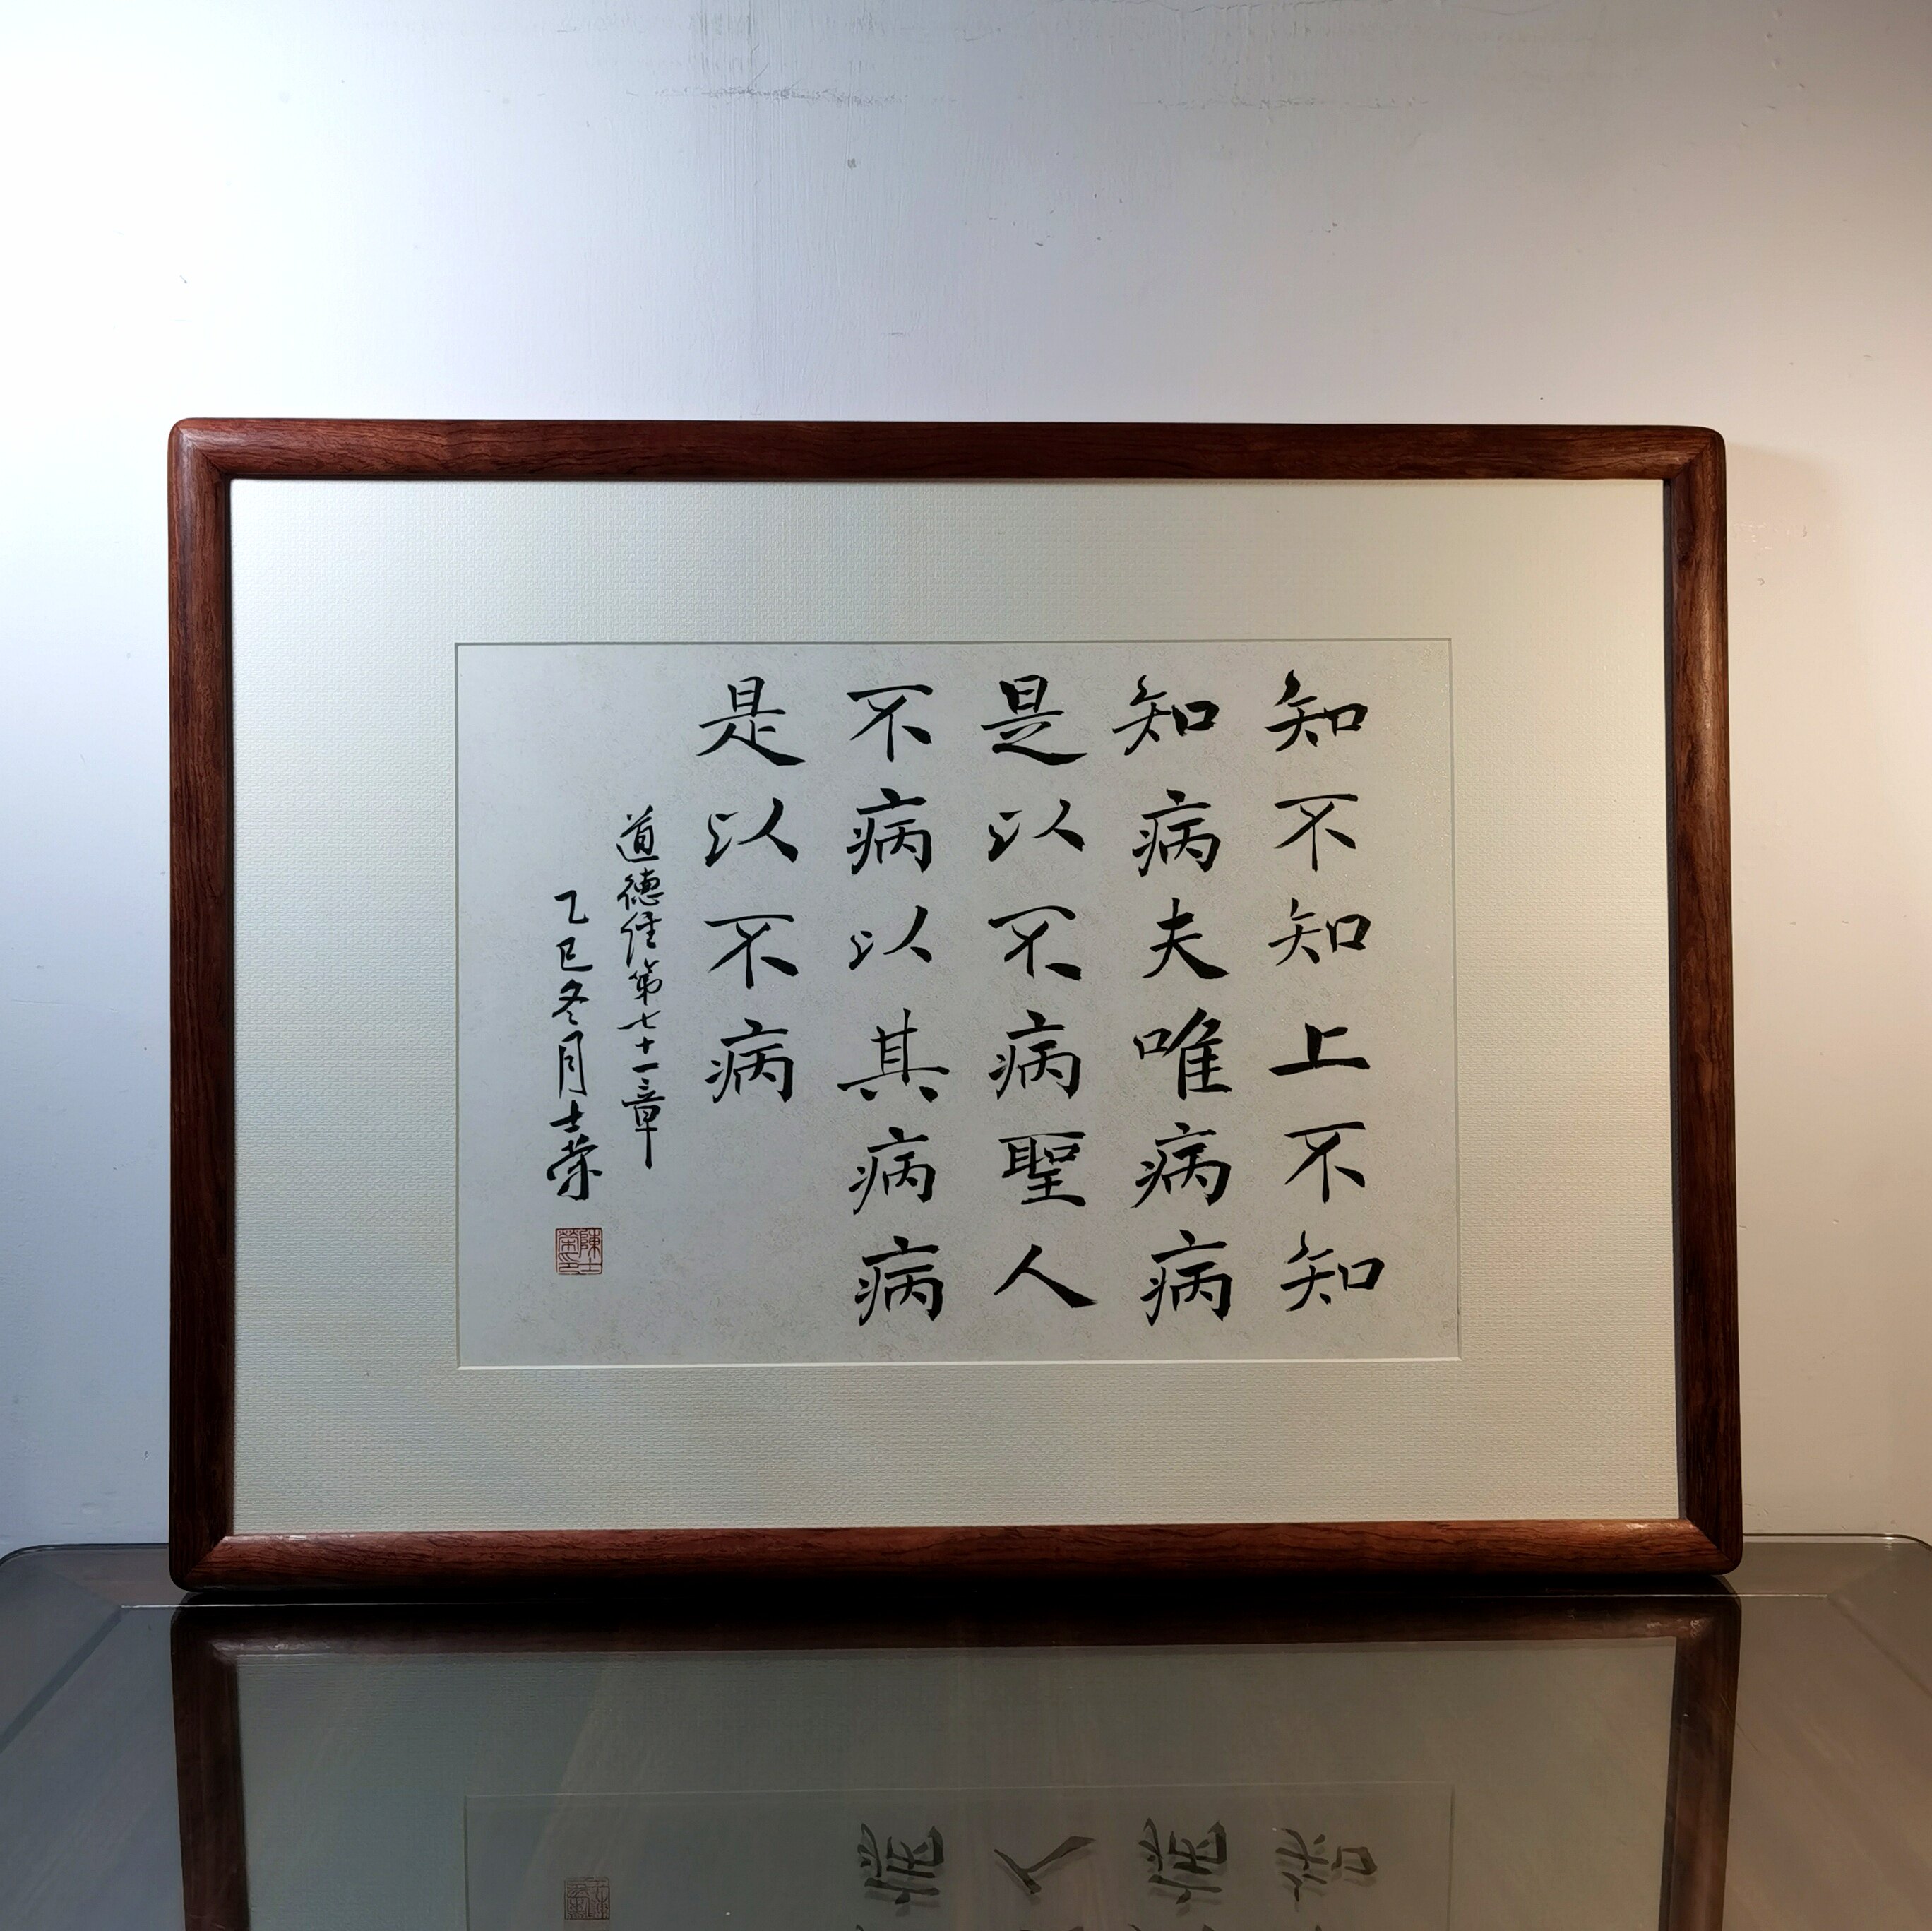 知不知上不知
知病夫唯病病
是以不病聖人
不病以其病病
是以不病
道德經第七十一章
乙巳冬月士榮
陳士
榮印